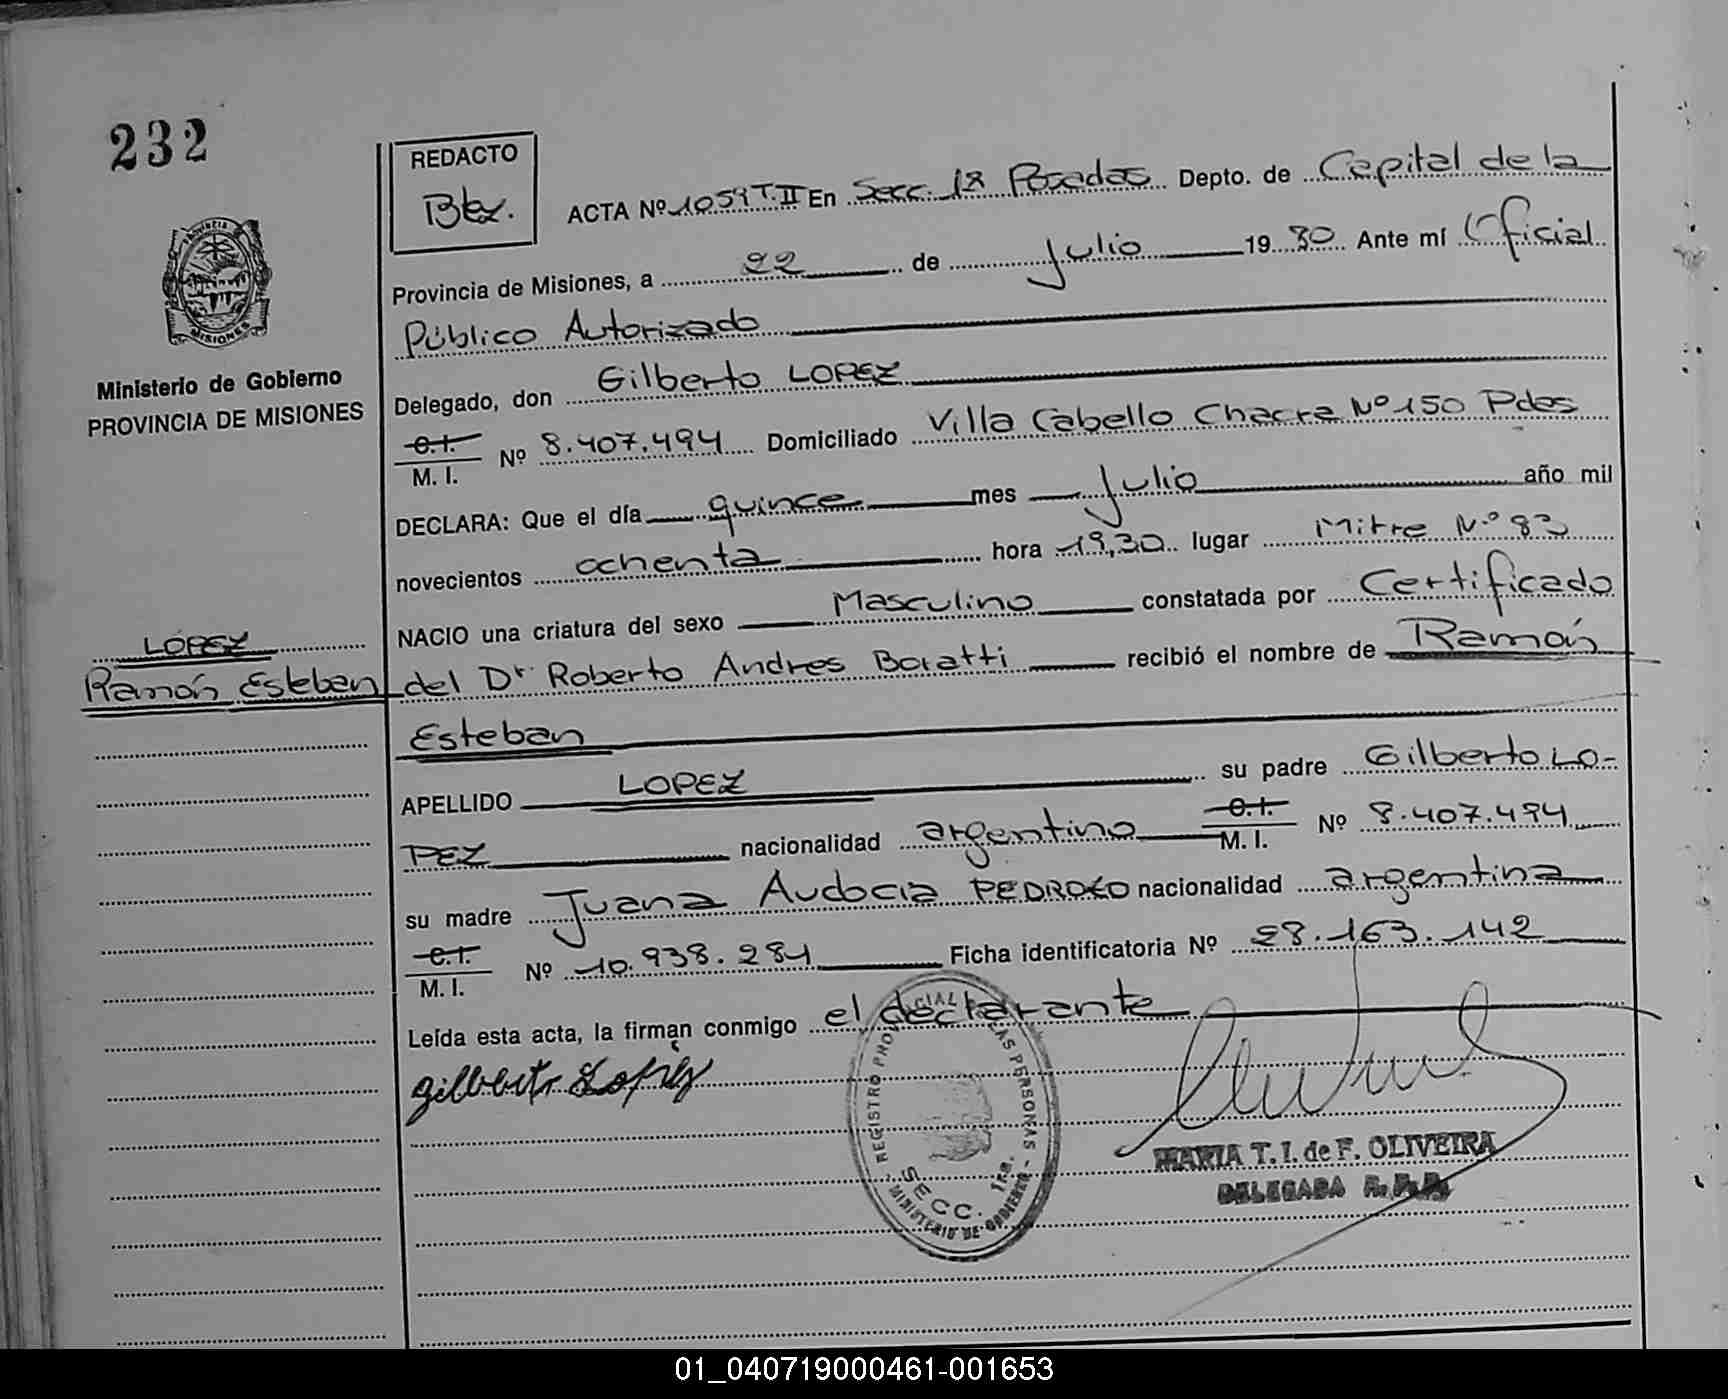 232
REDACTO
Btz.
ACTA Nº 1059 T.II En Secc. 1ª Posadas Depto. de Capital de la
Provincia de Misiones, a 22 de Julio 19 80 Ante mí Oficial
Público Autorizado
Delegado, don Gilberto LOPEZ
C.I. M. I. Nº 8.407.494 Domiciliado Villa Cabello Chacra Nº 150 Pdas
DECLARA: Que el día quince mes Julio año mil
novecientos ochenta hora 19,30 lugar Mitre Nº 83
NACIO una criatura del sexo Masculino constatada por Certificado
del Dr Roberto Andres Boratti recibió el nombre de Ramón
Esteban
APELLIDO LOPEZ su padre Gilberto LO-
PEZ nacionalidad argentino C.I. M. I. Nº 8.407.494
su madre Juana Audocia PEDROZO nacionalidad argentina
C.I. M. I. Nº 10.938.284 Ficha identificatoria Nº 28.163.142
Leída esta acta, la firman conmigo el declarante
Gilberto Lopez
PROVINCIA
MISIONES
Ministerio de Gobierno
PROVINCIA DE MISIONES
LOPEZ
Ramón Esteban
REGISTRO PROVINCIAL LAS PERSONAS
SECC. 1ra.
MINISTERIO DE GOBIERNO
MARIA T. I. de F. OLIVEIRA
DELEGADA R.P.P.
01_040719000461-001653